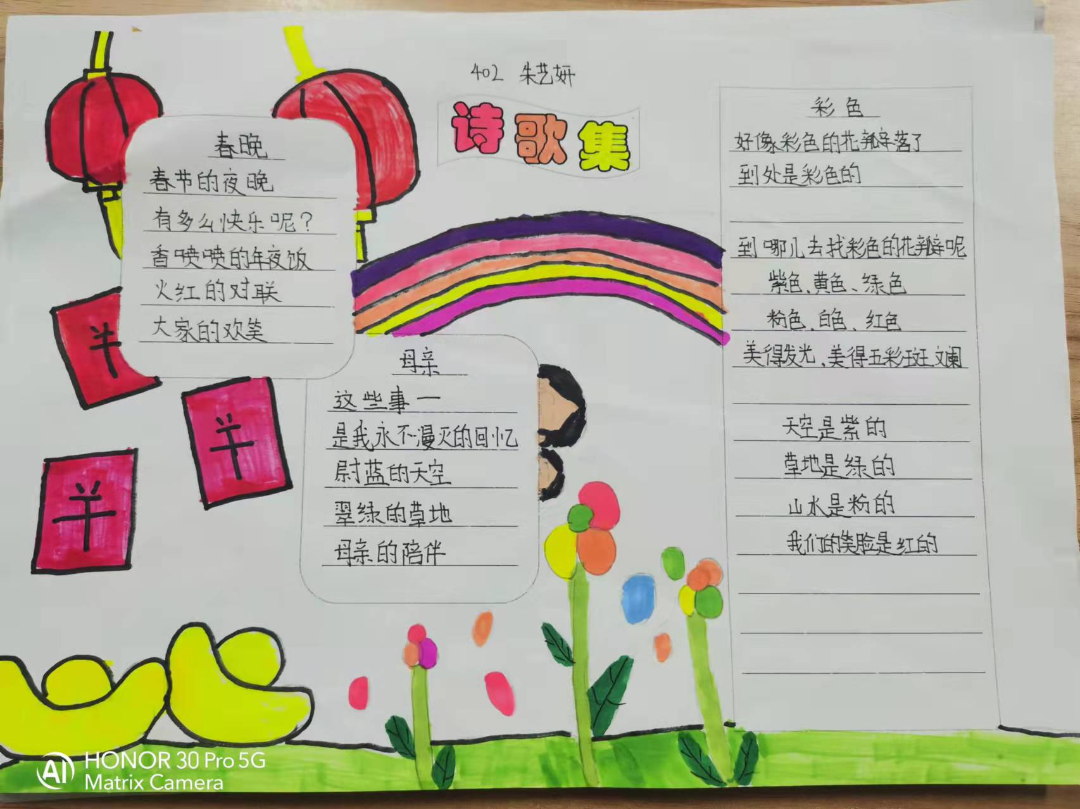 402 朱艺妍
诗歌集
春晚
春节的夜晚
有多么快乐呢？
香喷喷的年夜饭
火红的对联
大家的欢笑
母亲
这些事一
是我永不漫灭的回忆
尉蓝的天空
翠绿的草地
母亲的陪伴
彩色
好像彩色的花瓣落了
到处是彩色的
到哪儿去找彩色的花瓣呢
紫色、黄色、绿色
粉色、白色、红色
美得发光、美得五彩斑斓
天空是紫的
草地是绿的
山水是粉的
我们的笑脸是红的
羊
羊
羊
AI HONOR 30 Pro 5G
Matrix Camera